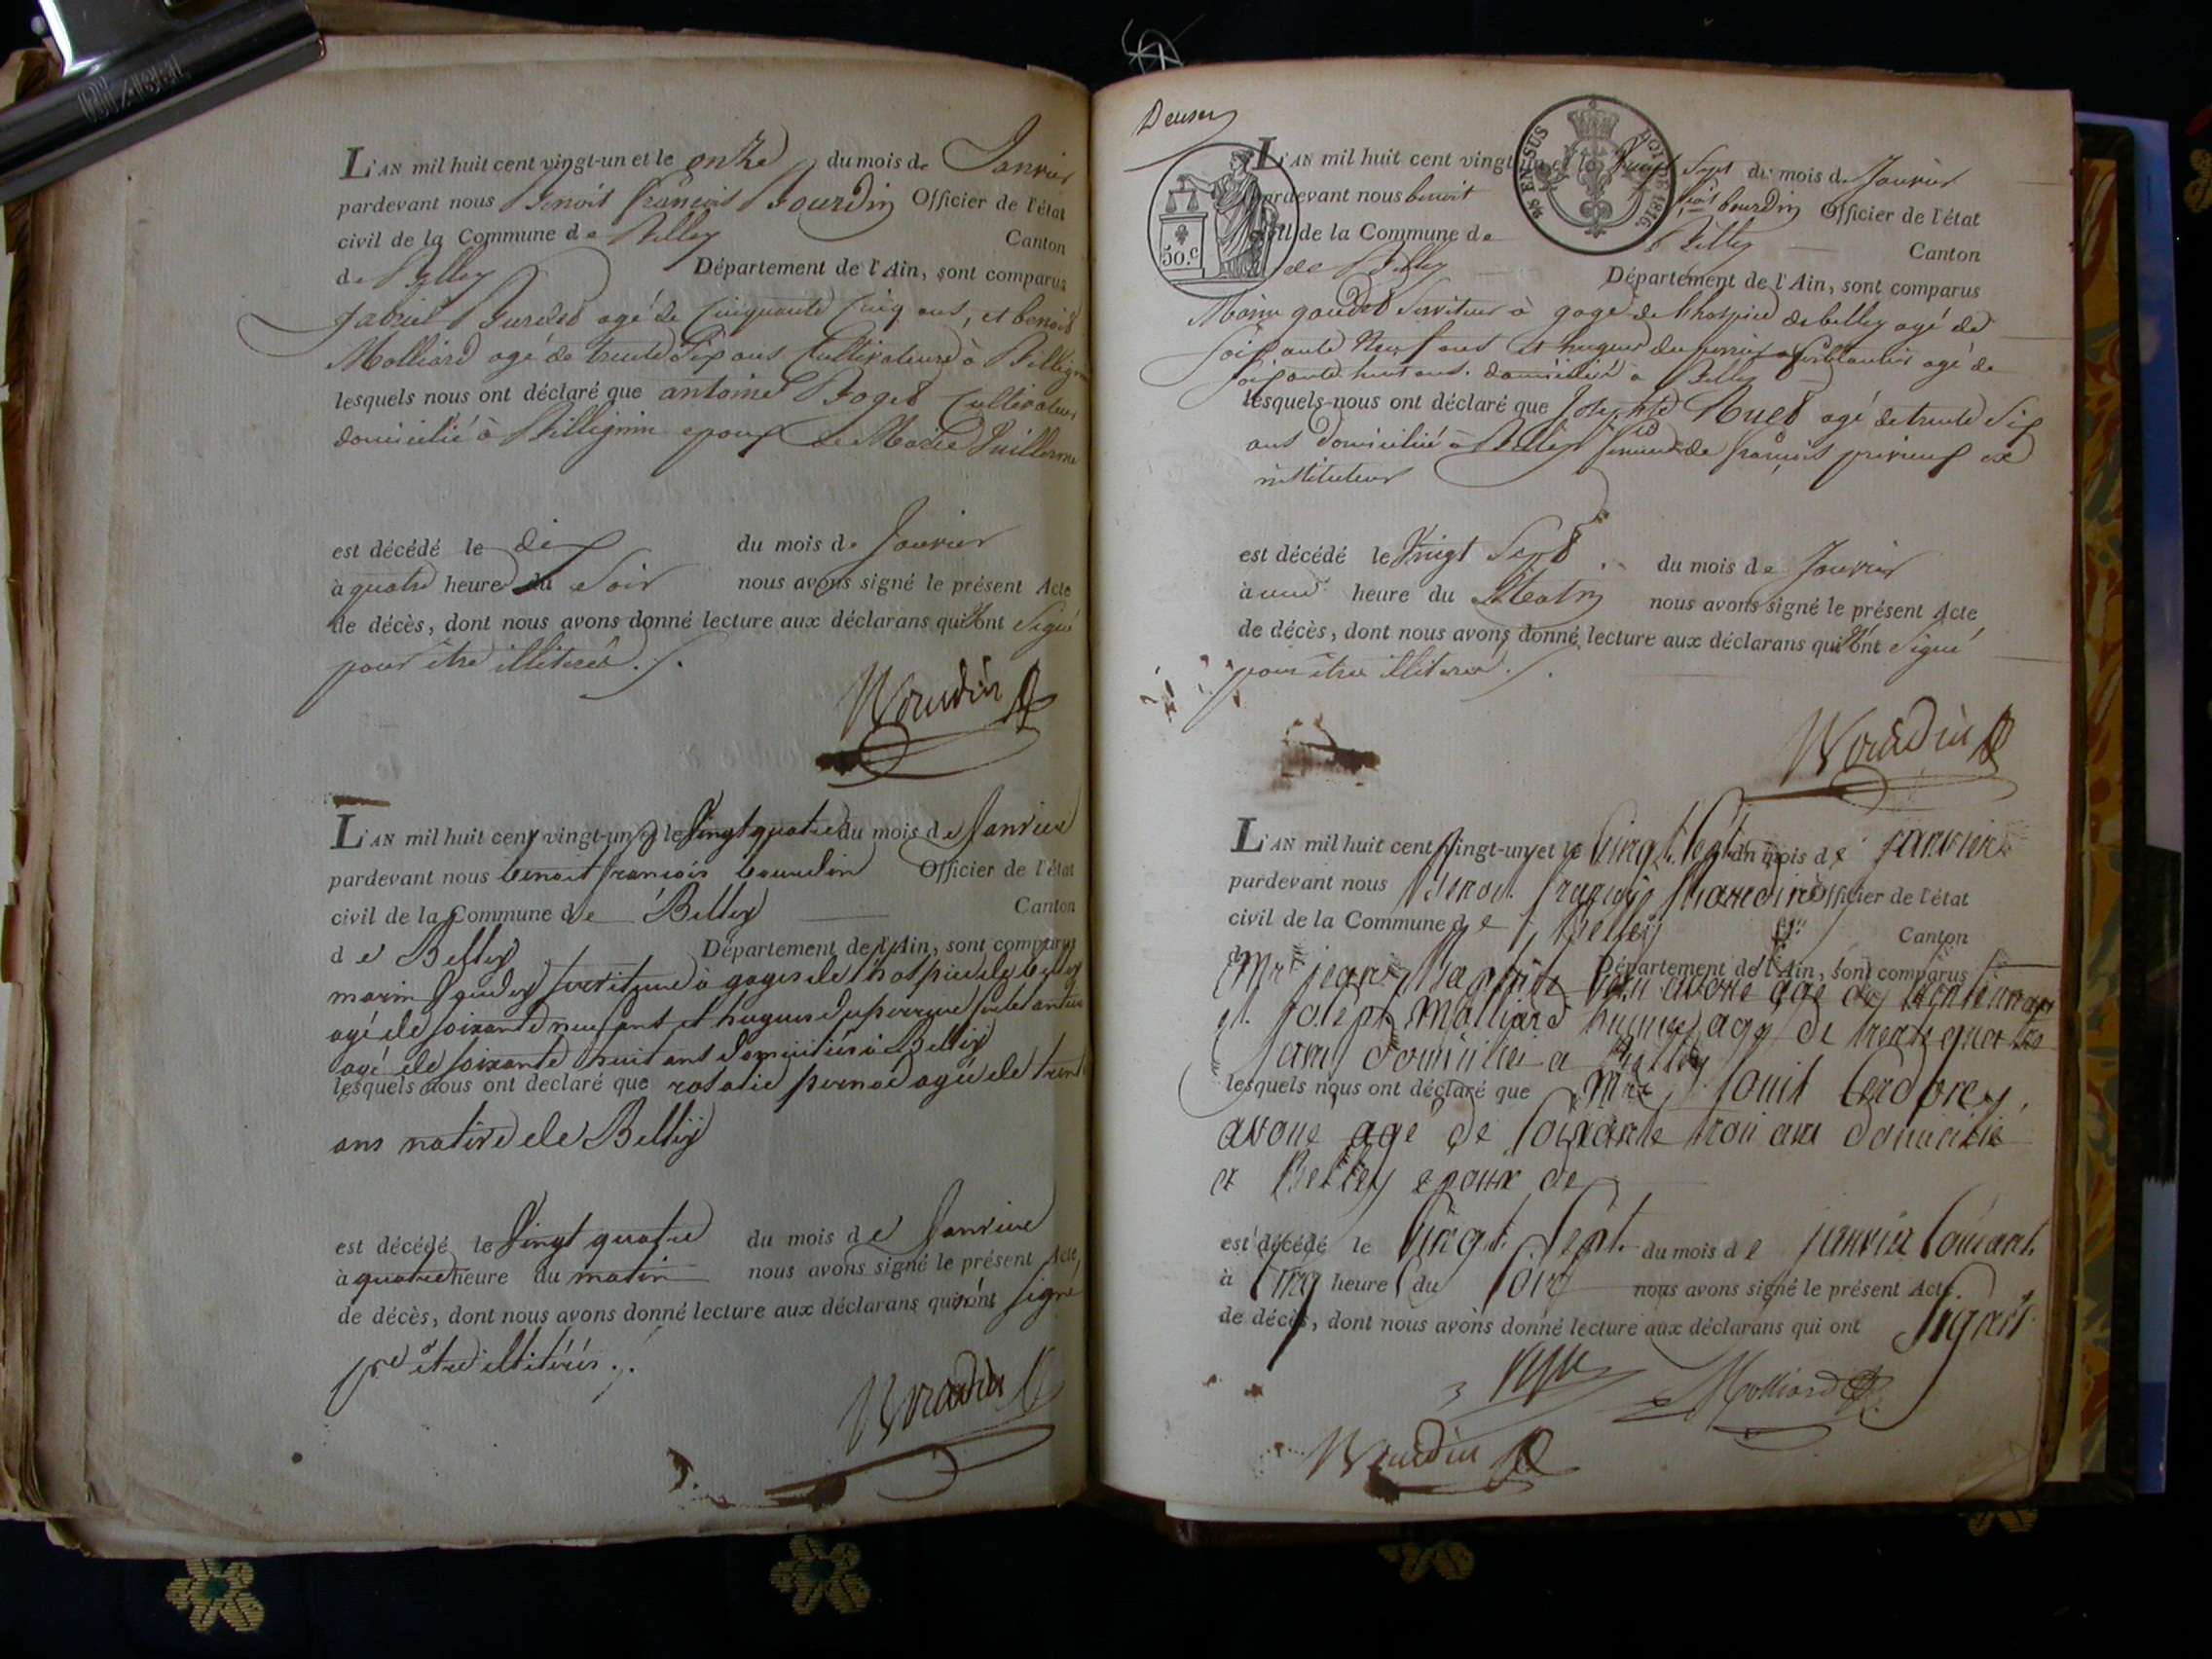 L'AN mil huit cent vingt-un et le onze du mois de Janvier
pardevant nous Benoit françois Bourdin Officier de l'état
civil de la Commune de Belley Canton
de Belley Département de l'Ain, sont comparus
agé de Cinquante Cinq ans, et benoit
Molliard agé de trente Six ans Cultivateurs à Billignin
lesquels nous ont déclaré que antoine Roget Cultivateur
domicilié à Billignin epoux de Marie Puillerme
est décédé le dix du mois de Janvier
à quatre heure du Soir nous avons signé le présent Acte
de décès, dont nous avons donné lecture aux déclarans qui n'ont Signé
pour être illiterés ./.
Bourdin
L'AN mil huit cent vingt-un et le Vingt quatre du mois de Janvier
pardevant nous benoit francois bourdin Officier de l'état
civil de la Commune de Belley Canton
de Belley Département de l'Ain, sont comparus
marin Goudet serviteur à gages de l'hospice de belley
agé de soixante neuf ans et hugues duperrier ferblantier
agé de soixante huit ans domiciliés à Belley
lesquels nous ont declaré que rosalie pernod agée de trente
ans native de Belley
est décédé le Vingt quatre du mois de Janvier
à quatre heure du matin nous avons signé le présent Acte,
de décès, dont nous avons donné lecture aux déclarans qui n'ont signé
pr être illitérés ./.
Bourdin
50.c
EN SUS
LOI DE 1816.
L'AN mil huit cent vingt-un et le Vingt Sept du mois de Janvier
pardevant nous benoit frçois bourdin Officier de l'état
civil de la Commune de Belley Canton
de Belley Département de l'Ain, sont comparus
Marin goudet Serviteur à gage de l'hospice de belley agé de
Soixante Neuf ans et hugues duperrier ferblantier agé de
Soixante huit ans. domiciliés à Belley
lesquels nous ont déclaré que Josephte agé de trente Six
ans domicilié à Belley femme de françois ex
instituteur
est décédé le Vingt Sept du mois de Janvier
à une heure du Matin nous avons signé le présent Acte
de décès, dont nous avons donné lecture aux déclarans qui n'ont Signé
pour être illiterés ./.
Bourdin
L'AN mil huit cent vingt-un et le Vingt Sept du mois de janvier
pardevant nous Benoit françois Bourdin Officier de l'état
civil de la Commune de Belley Canton
Département de l'Ain, sont comparus
Mr jean Baptiste avoué agé de
et joseph Molliard huissier agé de trente quatre
ans domiciliés a Belley
lesquels nous ont déclaré que Mr Louis
avoué agé de soixante trois ans domicilié
a Belley epoux de
est décédé le Vingt Sept du mois de janvier Courant
à Cinq heure du Soir nous avons signé le présent Acte
de décès, dont nous avons donné lecture aux déclarans qui ont Signés
Molliard
Bourdin